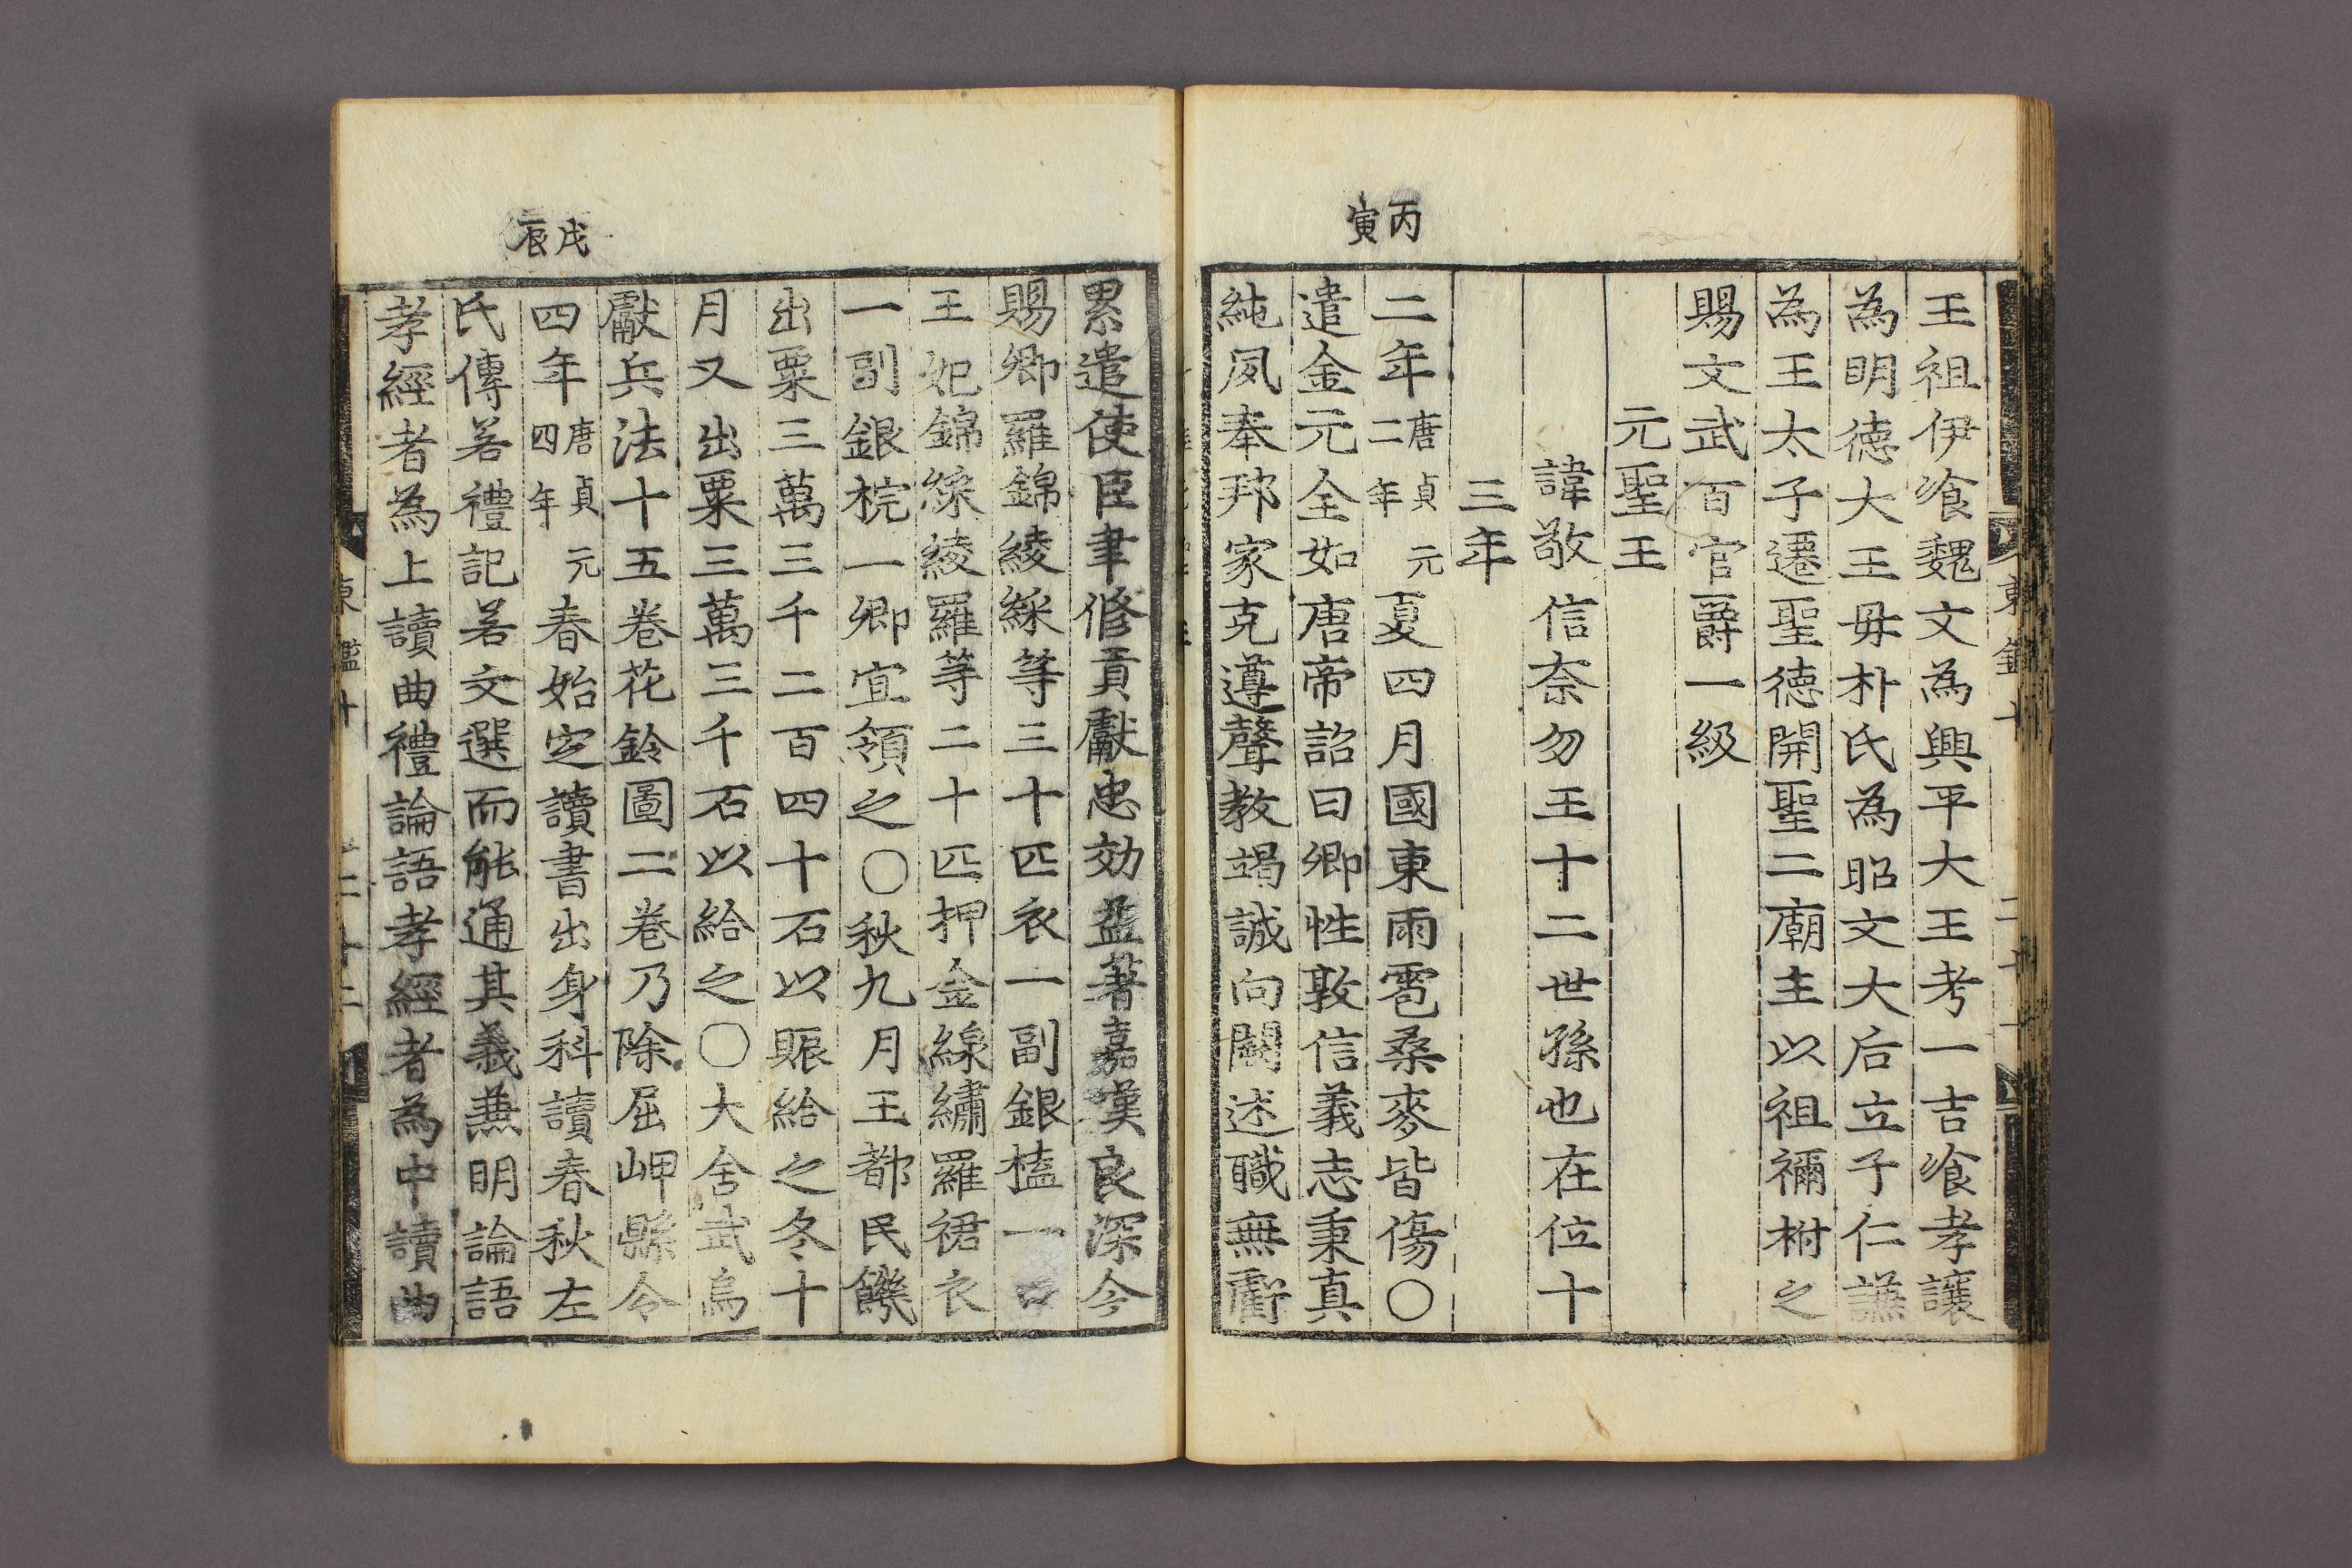 王祖伊飡魏文為興平大王考一吉飡孝讓
為明徳大王毋朴氏為昭文大后立子仁謙
為王太子遷聖徳開聖二廟主以祖禰祔之
賜文武百官爵一級
元聖王
諱敬信奈勿王十二世孫也在位十
三年
丙寅
二年唐貞元二年夏四月國東雨雹桑麥皆傷○
遣金元全如唐帝詔曰卿性敦信義志秉真
純夙奉邦家克遵聲教竭誠向闕述職無虧
累遣使臣聿修貢獻忠効益著嘉嘆良深今
賜卿羅錦綾綵等三十匹衣一副銀榼一口
王妃錦綵綾羅等二十匹押金線繡羅裙衣
一副銀梡一卿宜領之○秋九月王都民饑
出粟三萬三千二百四十石以賑給之冬十
月又出粟三萬三千石以給之○大舍武烏
獻兵法十五卷花鈴圖二卷乃除屈岬縣令
戊辰
四年唐貞元四年春始定讀書出身科讀春秋左
氏傳若禮記若文選而能通其義兼明論語
孝經者為上讀曲禮論語孝經者為中讀曲
東鑑十
二十二